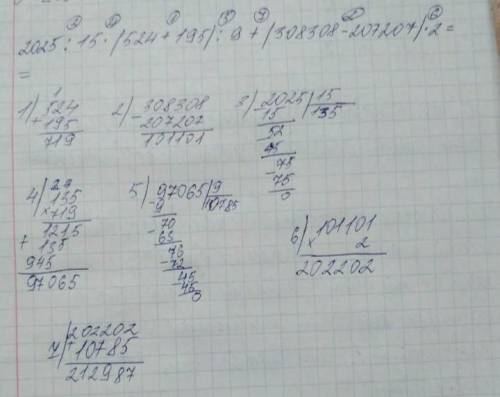 2025 : 15 · (524 + 195) : 9 + (308308 - 207207) · 2 =
=
1) 524
+ 195
719
2) - 308308
207207
101101
3) - 2025 | 15
15 | 135
52
45
- 75
75
0
4) 135
× 719
1215
+ 135
945
97065
5) - 97065 | 9
9 | 10785
- 70
63
- 76
- 72
45
45
0
6) 101101
× 2
202202
7) 202202
+ 10785
212987